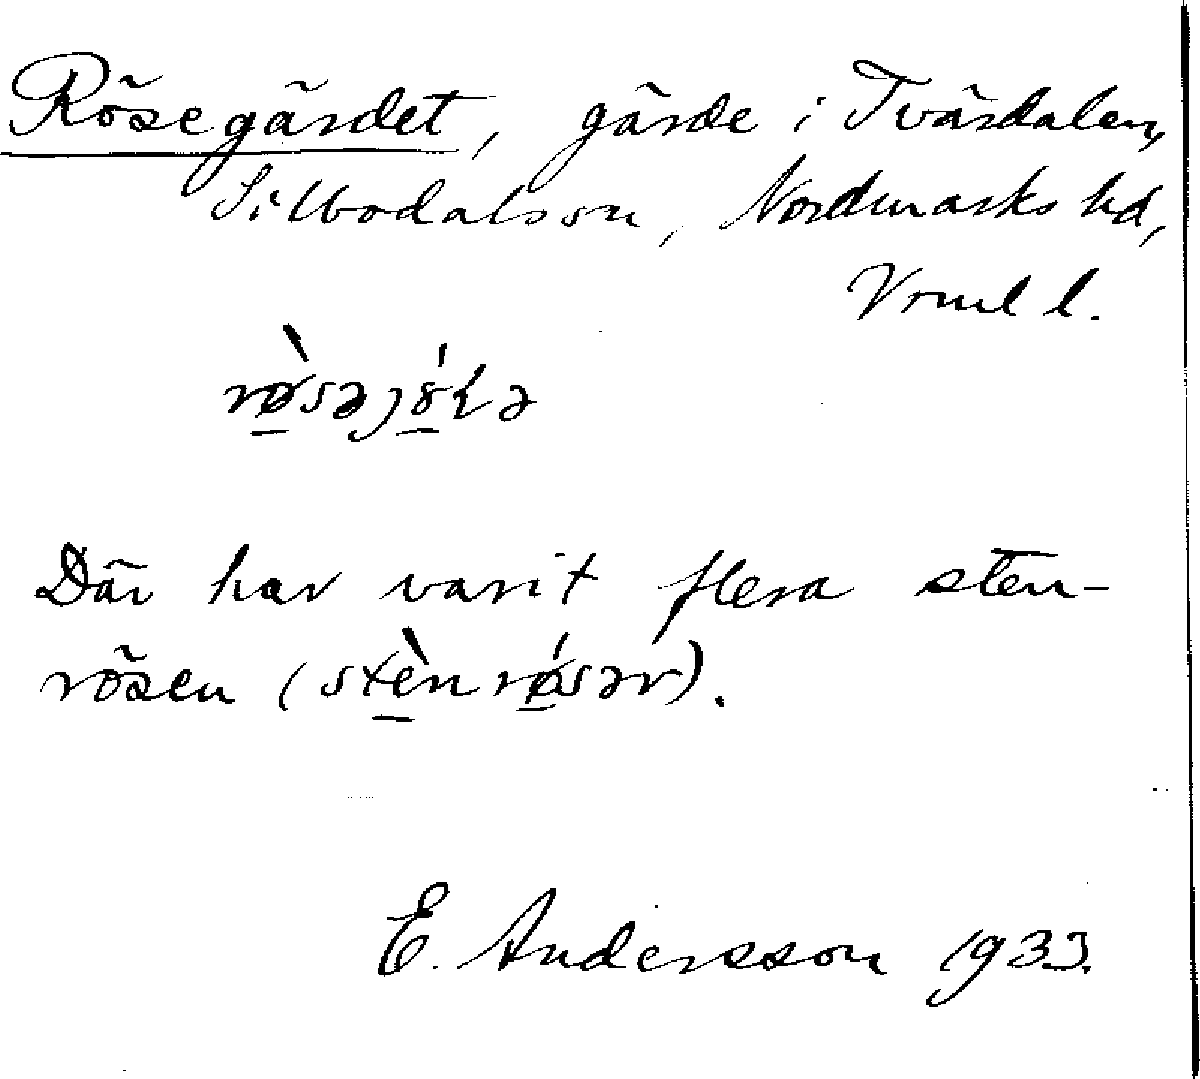 Rösegärdet, gärde i Tvärdalen,
Silbodals sn, Nordmarks hd,
Vrml l.
rø̀səjǿɽə
Där har varit flera sten-
rösen (stènrǿsər).
E. Andersson 1933.